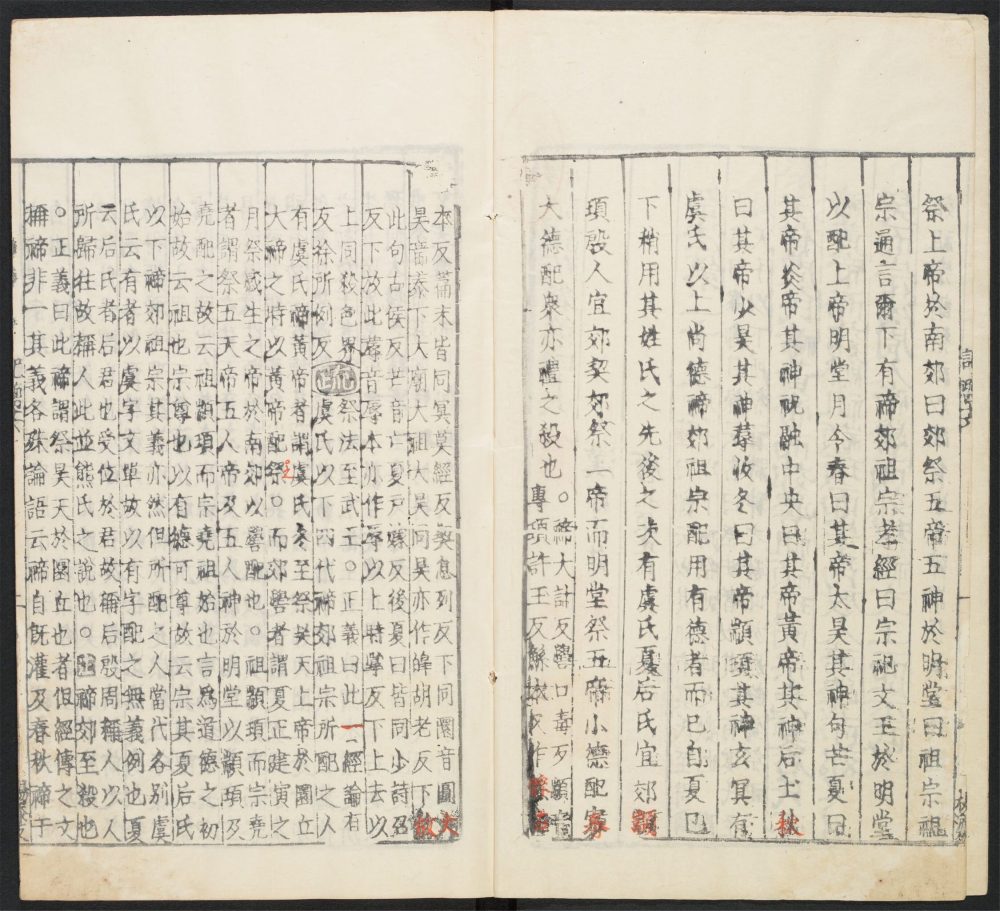 祭上帝於南郊曰郊祭五帝五神於明堂曰祖宗祖
宗通言爾下有禘郊祖宗孝經曰宗祀文王於明堂
以配上帝明堂月令春曰其帝太昊其神句芒夏曰
其帝炎帝其神祝融中央曰其帝黃帝其神后土秋
曰其帝少昊其神蓐收冬曰其帝顓頊其神玄冥有
虞氏以上尚德禘郊祖宗配用有德者而已自夏已
下稍用其姓氏之先後之次有虞氏夏后氏宜郊顓
頊殷人宜郊契郊祭一帝而明堂祭五帝小德配寡
大德配衆亦禮之殺也
。禘大計反嚳口毒反顓音
專頊許玉反鯀本反作
本反篇末皆同冥莫經反契息列反下同圜音圓大
昊音泰下大廟大祖大昊同昊亦作皞胡老反下放
此句古侯反芒音亡夏戶嫁反後夏曰皆同少詩召
反下放此蓐音辱本亦作辱以上時掌反下上去以
上同殺色界反徐所例反
疏
祭法至武王。正義曰此一經論有
虞氏以下四代禘郊祖宗所配之人
有虞氏禘黃帝者謂虞氏冬至祭昊天上帝於圜丘
大禘之時以黃帝配祭。而郊嚳者謂夏正建寅之
月祭感生之帝於南郊以嚳配也。祖顓頊而宗堯
者謂祭五天帝五人帝及五人神於明堂以顓頊及
堯配之故云祖顓頊而宗堯祖始也言爲道德之初
始故云祖也宗尊也以有德可尊故云宗其夏后氏
以下禘郊祖宗其義亦然但所配之人當代各別虞
氏云有者以虞字文單故以有字配之無義例也夏
云后氏者后君也受位於君故稱后殷周稱人以人
所歸往故稱人此並熊氏之說也。
禘郊至殺也
。正義曰此禘謂祭昊天於圜丘也者但經傳之文
稱禘非一其義各殊論語云禘自旣灌及春秋禘于